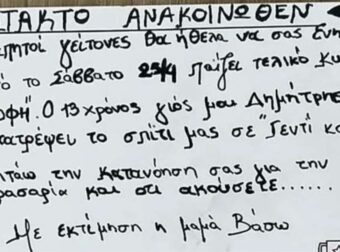 ΤΑΚΤΟ ΑΝΑΚΟΙΝΩΘΕΝ
πητοί γείτονες θα ήθελα να σας ενη
ό το Σάββατο 25/4 παίζει τελικό Κυ
οφή". Ο 13χρονος γιός μου Δημήτρης
ατρέψει το σπίτι μας σε "Γεντί κο
ητάω την κατανόηση σας για την
ρασαρία και ότι ακούσετε......
Με εκτέμηση η μαμά Βάσω